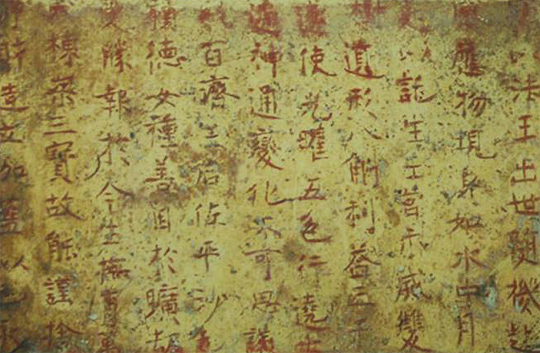 以法王出世隨機赴
應物現身如水中月
以託生王宮示滅雙
樹遺形八斛利益三千
遂使光曜五色行遶七
遍神通變化不可思議
我百濟王后佐平沙乇
積德女種善因於曠劫
受勝報於今生撫育萬
民棟梁三寶故能謹捨
財造立伽藍以己亥